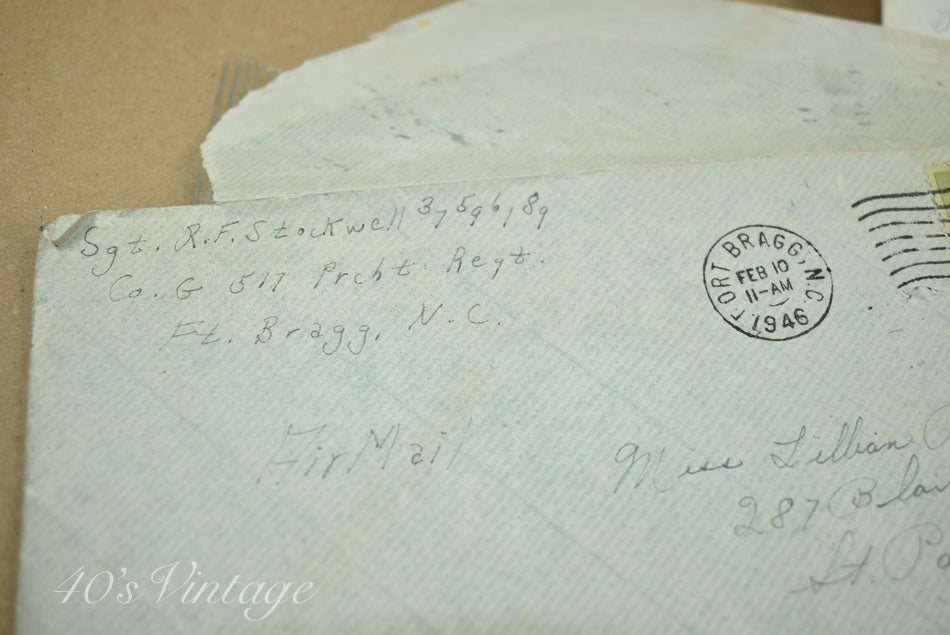 Sgt. R.F. Stockwell 37596189
Co. G 517 Prcht Regt.
Ft. Bragg, N.C.
FORT BRAGG, N.C.
FEB 10
11-AM
1946
Air Mail
Miss Lillian
287
St.
40's Vintage